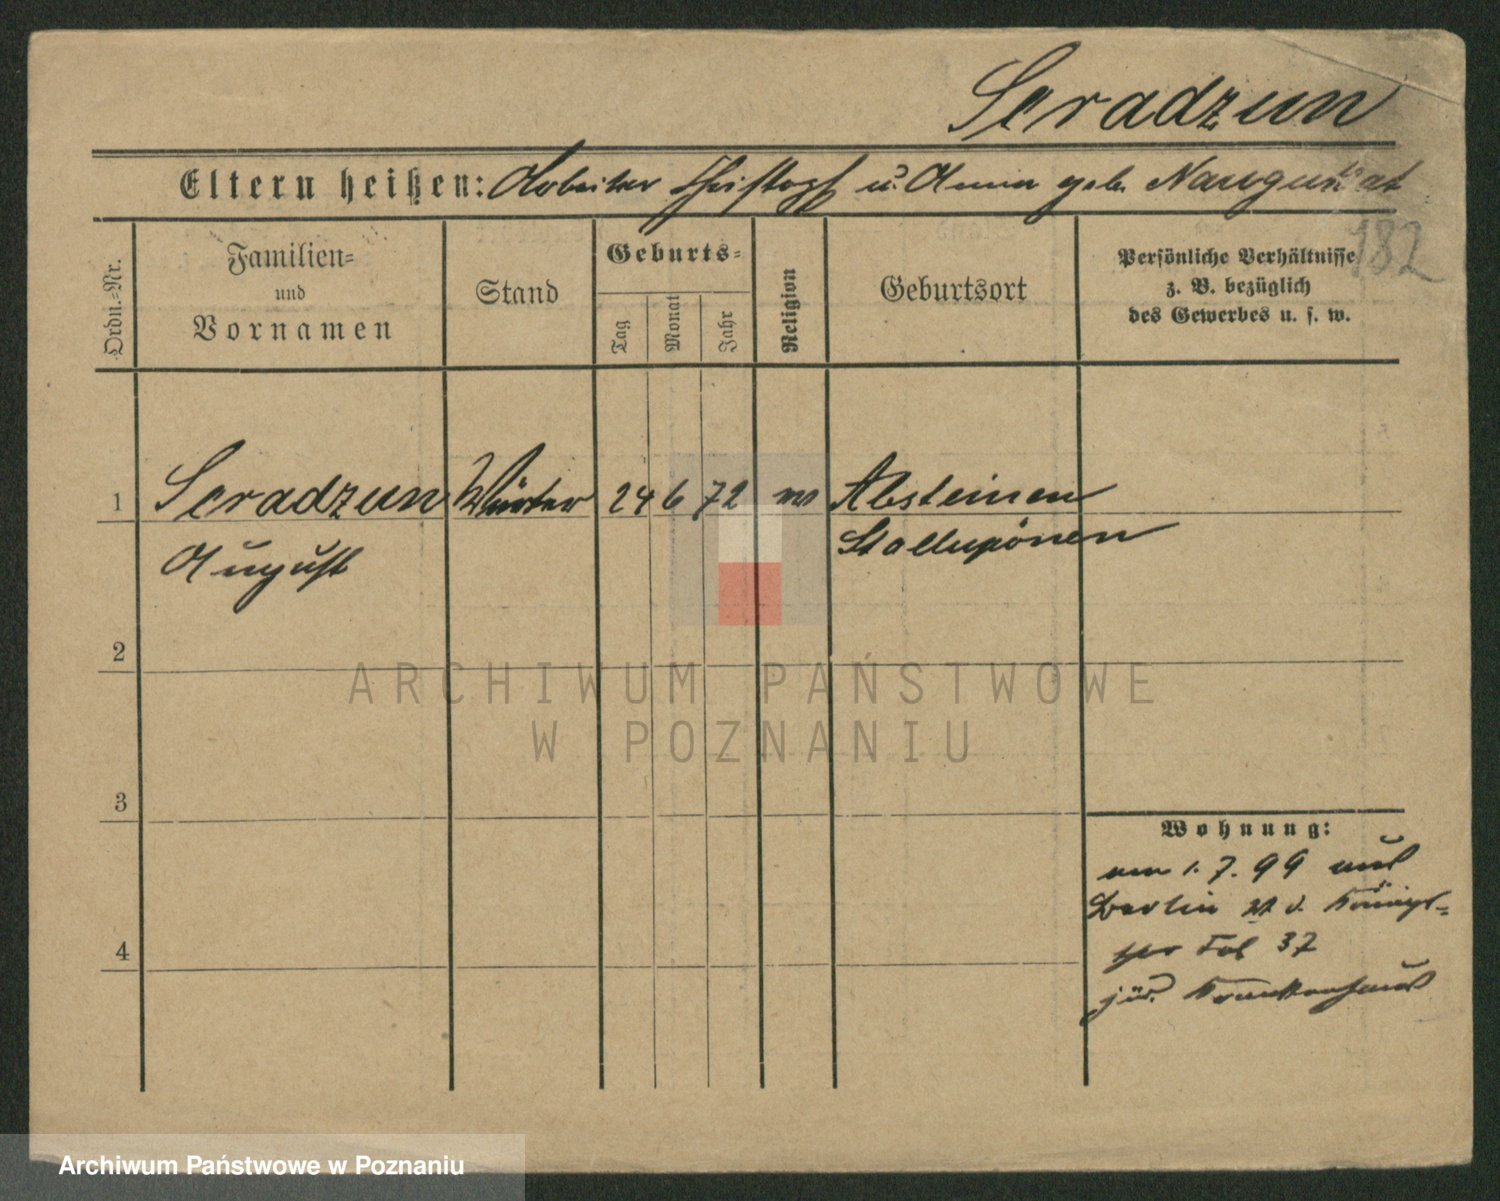 Seradzun
Eltern heißen: Arbeiter Christoph u. Anna geb. Naugunat
182
Ordn.=Nr.
Familien=
und
Vornamen
Stand
Geburts=
Tag
Monat
Jahr
Religion
Geburtsort
Persönliche Verhältnisse
z. B. bezüglich
des Gewerbes u. s. w.
1 Seradzun Wärter 24 6 72 Absteinen
August Stallupönen
2
3
4
Wohnung:
1. 7. 99 aus
Berlin
37
jüd. Krankenhaus
ARCHIWUM PAŃSTWOWE
W POZNANIU
Archiwum Państwowe w Poznaniu